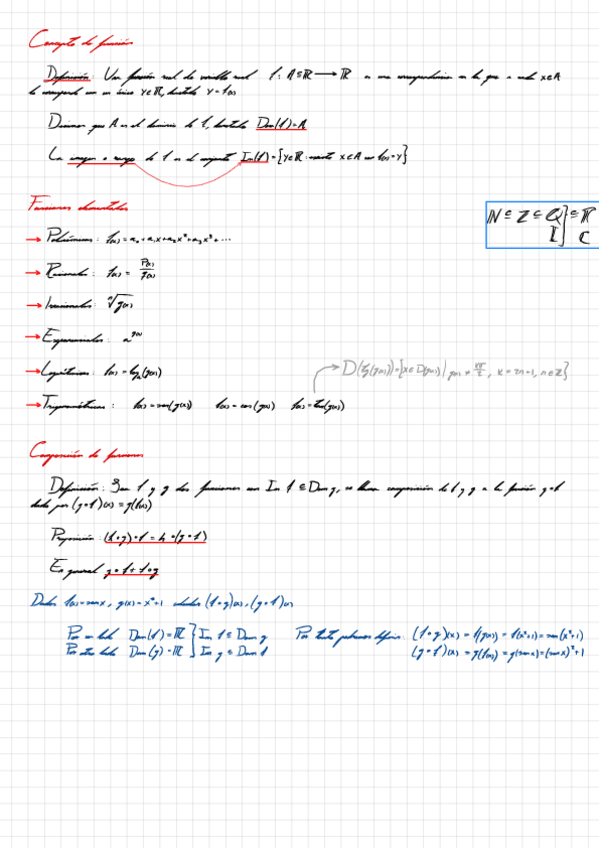 Concepto de función
Definición: Una función real de variable real f: A⊆ℝ → ℝ es una correspondencia en la que a cada x∈A
le corresponde un único y∈ℝ, denotado y=f(x)
Decimos que A es el dominio de f, denotado Dom(f)=A
La imagen o rango de f es el conjunto Im(f)={y∈ℝ: existe x∈A con f(x)=y}
Funciones elementales
ℕ⊆ℤ⊆ℚ] ⊆ℝ
𝕀] ℂ
→ Polinómicas: f(x)=a₀+a₁x+a₂x²+a₃x³+...
→ Racionales: f(x)= p(x)/q(x)
→ Irracionales: ⁿ√g(x)
→ Exponenciales: a^g(x)
→ Logarítmicas: f(x)=logₐ(g(x))
D(tg(g(x)))={x∈D(g(x)) | g(x)≠ kπ/2, k=2n+1, n∈ℤ}
→ Trigonométricas: f(x)=sen(g(x)) f(x)=cos(g(x)) f(x)=tan(g(x))
Composición de funciones
Definición: Sean f y g dos funciones con Im f ⊆ Dom g, se llama composición de f y g a la función g∘f
dada por (g∘f)(x)=g(f(x))
Proposición: (h∘g)∘f = h∘(g∘f)
En general g∘f≠f∘g
Dadas f(x)=senx, g(x)=x²+1 (f∘g)(x), (g∘f)(x)
Por un lado Dom(f)=ℝ ] Im f ⊆ Dom g Por tanto podemos definir: (f∘g)(x) = f(g(x)) = f(x²+1)=sen(x²+1)
Por otro lado Dom(g)=ℝ ] Im g ⊆ Dom f (g∘f)(x) = g(f(x)) = g(senx)=(senx)²+1